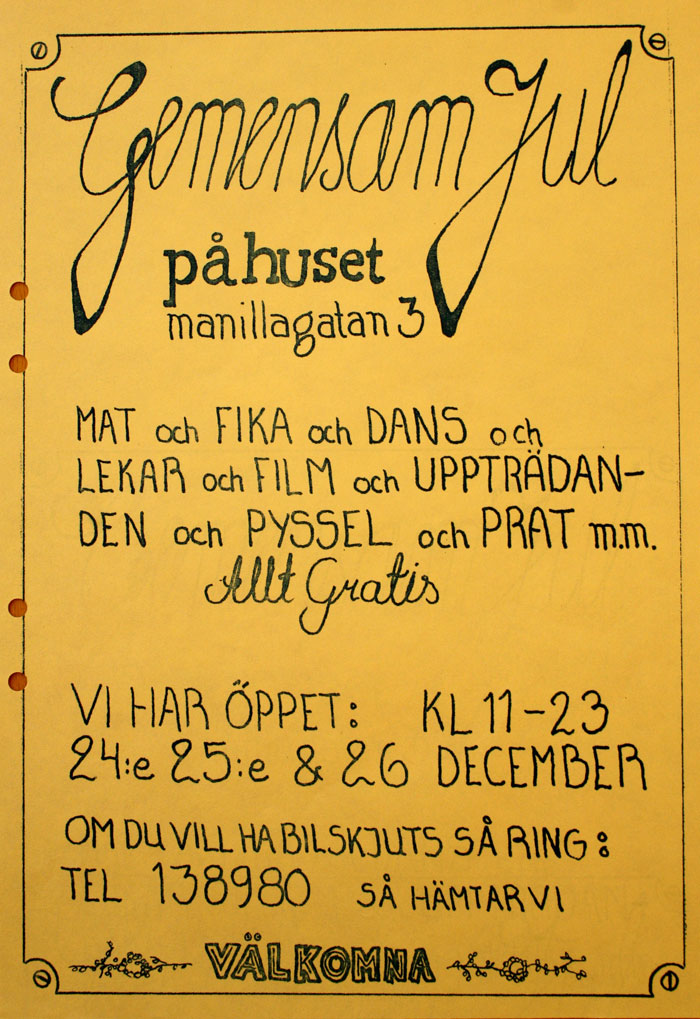 Gemensam Jul
på huset
manillagatan 3
MAT och FIKA och DANS och
LEKAR och FILM och UPPTRÄDAN-
DEN och PYSSEL och PRAT m.m.
Allt Gratis
VI HAR ÖPPET: KL 11-23
24:e 25:e & 26 DECEMBER
OM DU VILL HA BILSKJUTS SÅ RING:
TEL 138980 SÅ HÄMTAR VI
VÄLKOMNA